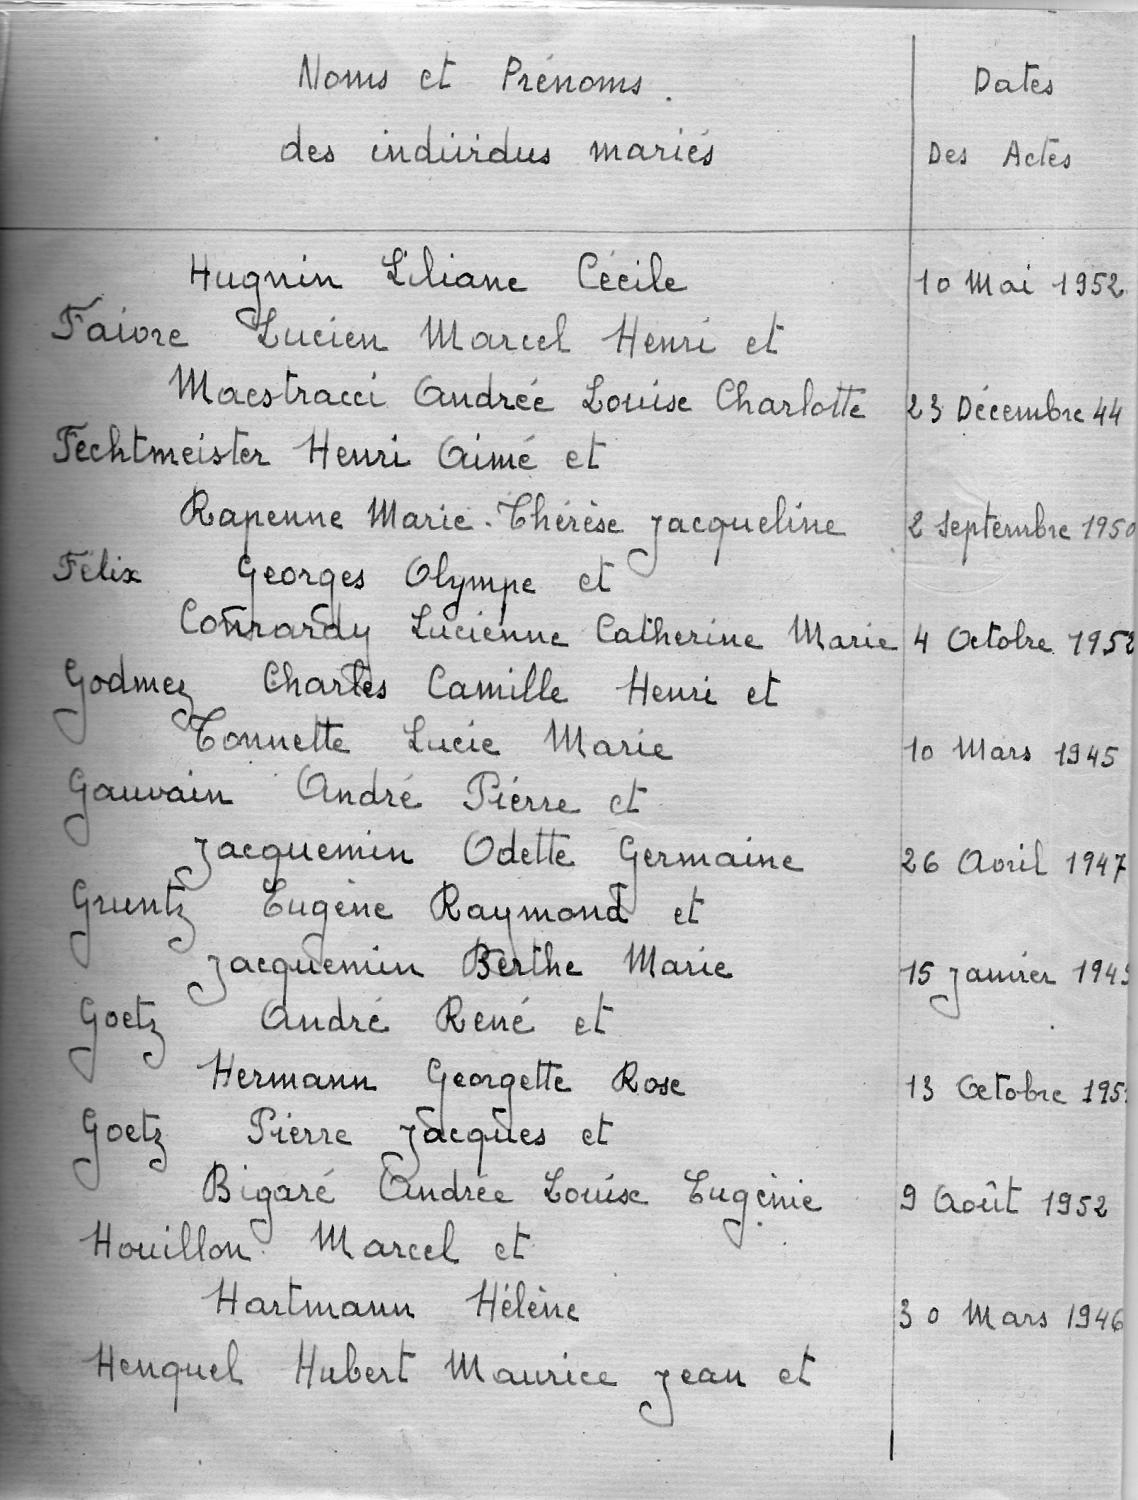 Noms et Prénoms.
Dates
des individus mariés
Des Actes
Hugnin Liliane Cécile
10 Mai 1952
Faivre Lucien Marcel Henri et
Maestracci Andrée Louise Charlotte
23 Décembre 44
Fechtmeister Henri Aimé et
Rapenne Marie-Thérèse Jacqueline
2 Septembre 1950
Félix Georges Olympe et
Conrardy Lucienne Catherine Marie
4 Octobre 1952
Godmez Charles Camille Henri et
Tonnette Lucie Marie
10 Mars 1945
Gauvain André Pierre et
Jacquemin Odette Germaine
26 Avril 1947
Gruntz Eugène Raymond et
Jacquemin Berthe Marie
15 Janvier
Goetz André René et
Hermann Georgette Rose
13 Octobre
Goetz Pierre Jacques et
Bigaré Andrée Louise Eugénie
9 Août 1952
Houillon Marcel et
Hartmann Hélène
30 Mars 1946
Henquel Hubert Maurice Jean et